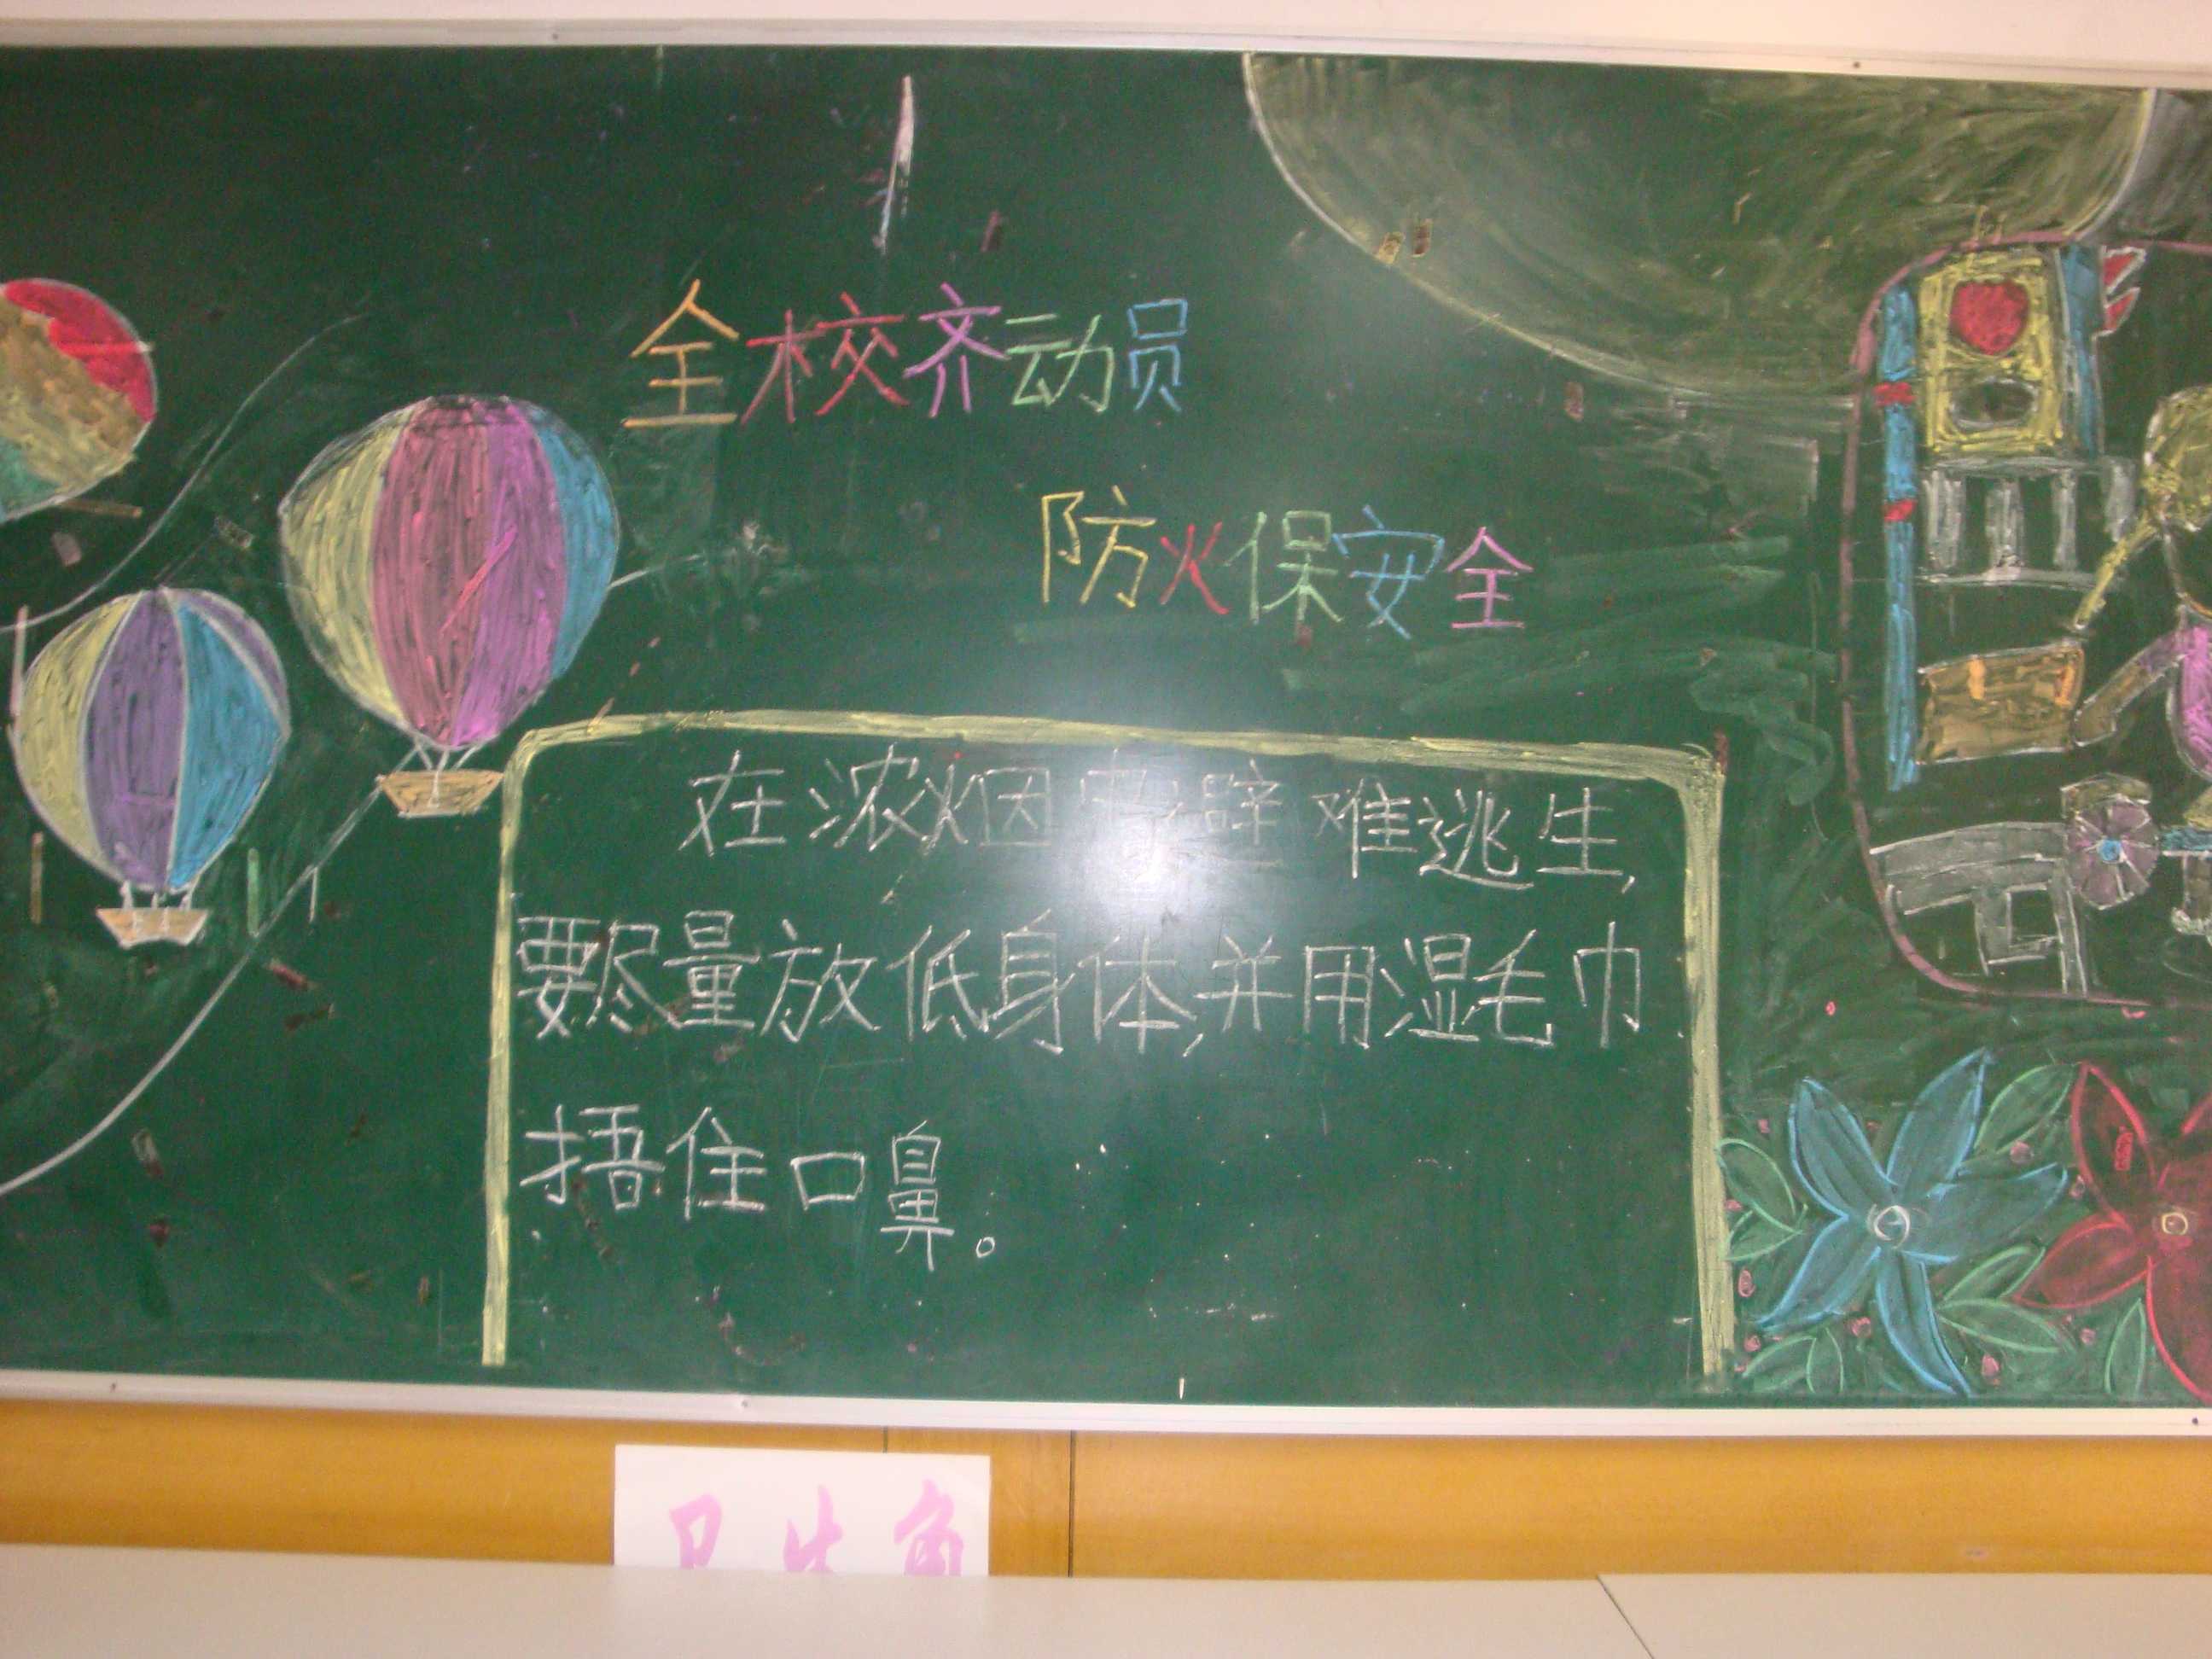 全校齐动员
防火保安全
在浓烟中避难逃生,
要尽量放低身体,并用湿毛巾
捂住口鼻。
卫生角